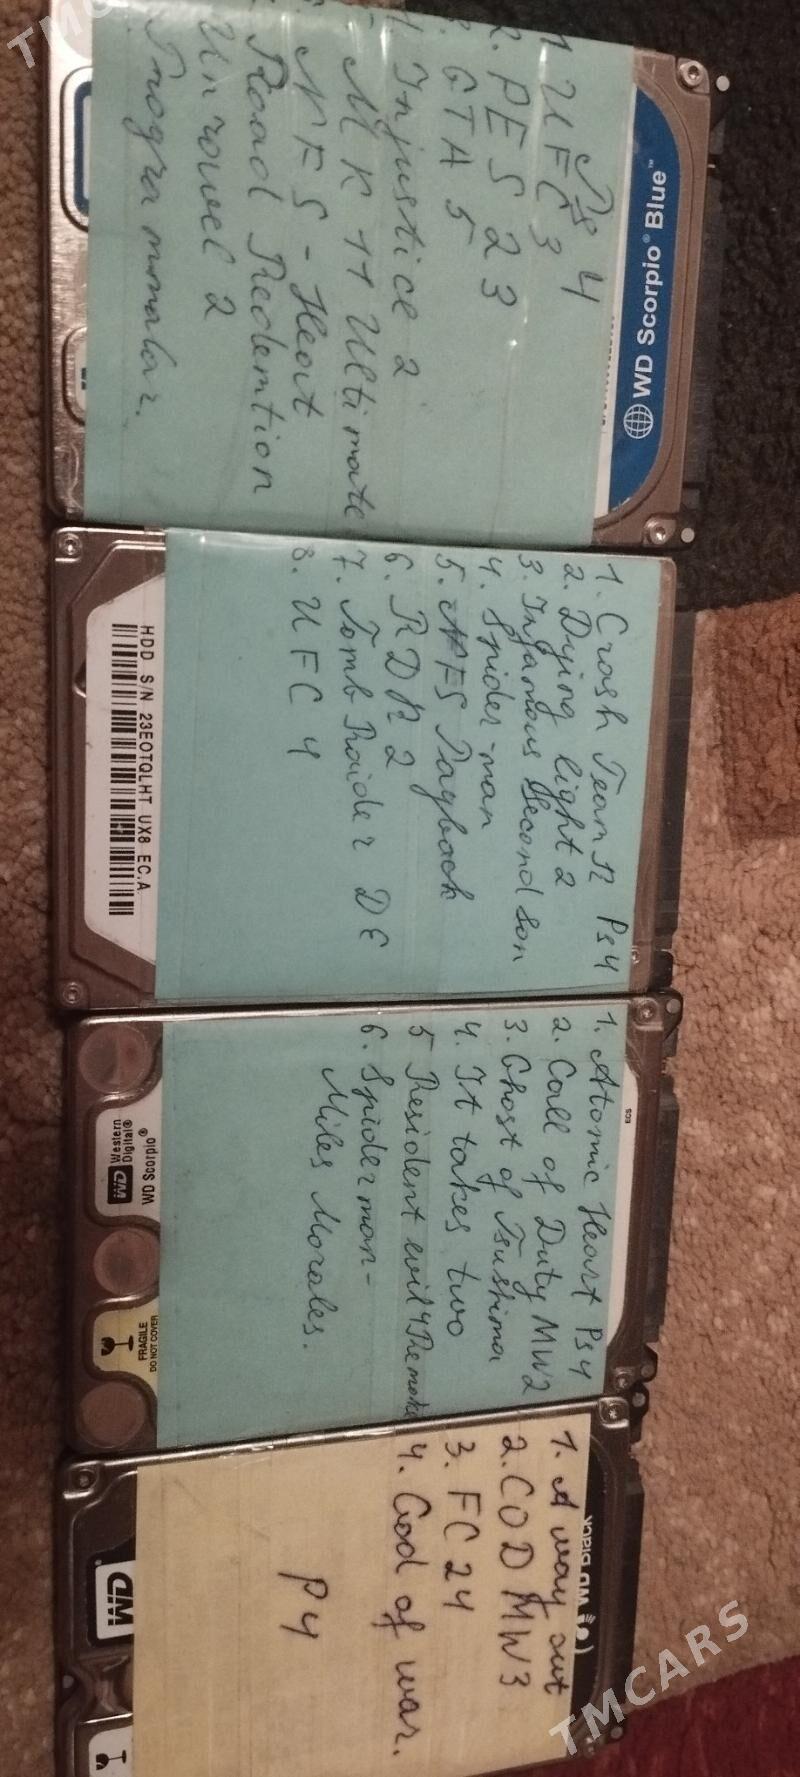 Ps 4
1 UFC 3
2. PES 23
3. GTA 5
4. Injustice 2
MK 11 Ultimate
NFS-Heart
Road Redemtion
Unrowel 2
Programmalar.
WD Scorpio® Blue™
1. Crash Team R Ps4
2. Dying light 2
3. Infamous Second son
4. Spider-man
5. NFS Payback
6. RDR 2
7. Tomb Raider DE
8. UFC 4
HDD S/N 23EOTQLHT UX8 EC.A
1. Atomic Heart Ps4
2. Call of Duty MW2
3. Ghost of Tsushima
4. It takes two
5 Resident evil 4 Remake
6. Spiderman-
Miles Morales.
WD Scorpio®
Western
Digital®
WD
FRAGILE
DO NOT COVER
1. A way out
2. COD MW3
3. FC 24
4. God of war.
P4
Black
WD
TMCARS